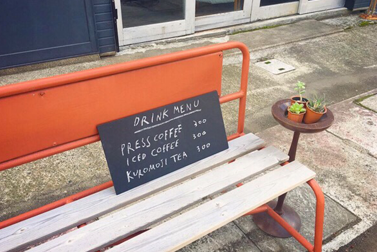 DRINK MENU
PRESS COFFEE 300
ICED COFFEE 300
KUROMOJI TEA 300